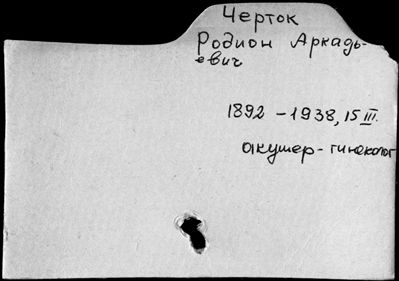 Черток
Родион Аркадь-
евич
1892 - 1938, 15 III.
акушер - гинеколог